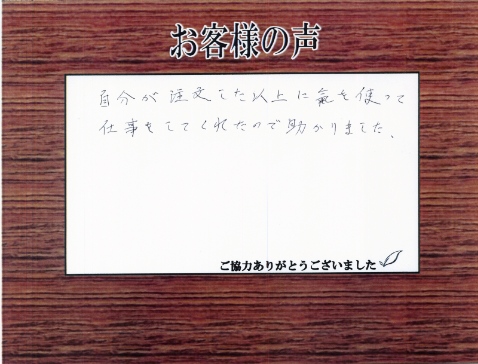 お客様の声
自分が注文した以上に氣を使って
仕事をしてくれたので助かりました。
ご協力ありがとうございました